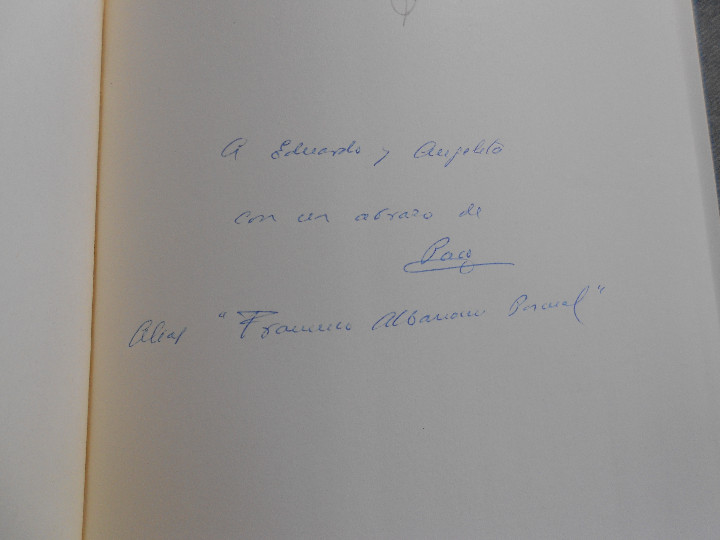 A Eduardo y Angelita
con un abrazo de
Paco
Alias "Francisco Pascual"